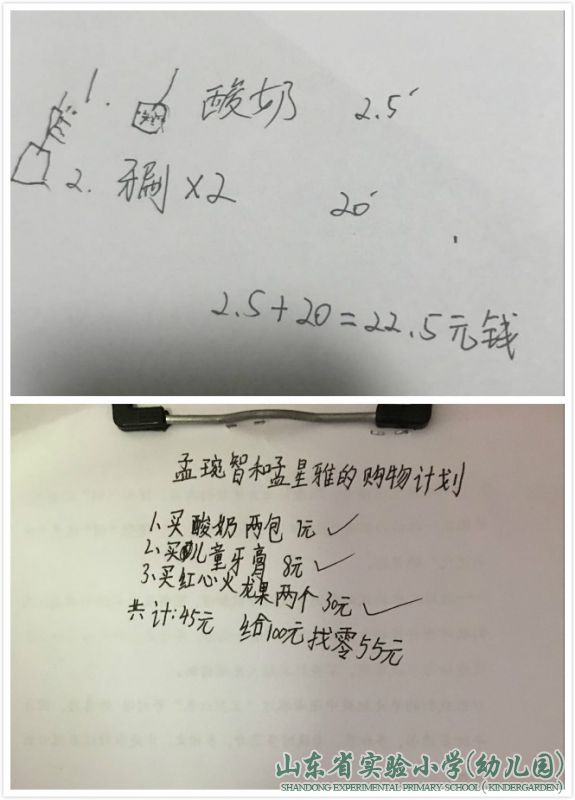 1. 酸奶 2.5
2. 牙刷 ×2 20
2.5+20=22.5元钱
孟琬智和孟星雅的购物计划
1、买酸奶两包 7元 ✓
2、买儿童牙膏 8元 ✓
3、买红心火龙果两个 30元 ✓
共计:45元 给100元找零55元
山东省实验小学(幼儿园)
SHANDONG EXPERIMENTAL PRIMARY SCHOOL ( KINDERGARDEN)